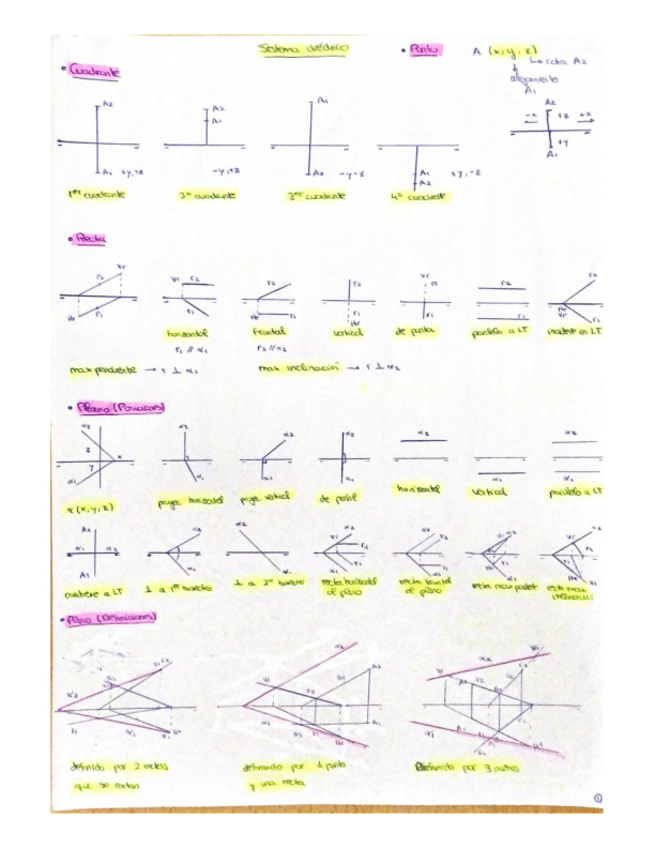 Sistema diédrico
• Punto
A (x, y, z)
cota A2
alejamiento
A1
• Cuadrante
A2
A1 +y,+z
1er cuadrante
A2
A1
-y,+z
2º cuadrante
A1
A2 -y-z
3er cuadrante
A1
A2
+y,-z
4º cuadrante
A2
-x +z +x
+y
A1
• Recta
Vr
r2
Hr r1
Vr r2
r1
horizontal
r1 // α1
r2
Hr r1
frontal
r2 // α2
r2
r1
Hr
vertical
Vr
r2
r1
de punta
r2
r1
paralela a LT
r2
Hr
Vr
r1
incidente en LT
max pendiente → r ⊥ α1
max inclinación → r ⊥ α2
• Plano (Posiciones)
α2
z
x
y
α1
α (x, y, z)
α2
α1
proyec horizontal
α2
α1
proyec vertical
α2
α1
de perfil
α2
horizontal
α1
vertical
α2
α1
paralelo a LT
A2
α1 α2
A1
contiene a LT
α2
α1
⊥ a 1er bisector
α2
α1
⊥ a 2º bisector
recta horizontal
del plano
recta frontal
del plano
recta max pendt
recta max
inclinación
• Plano (Definiciones)
definido por 2 rectas
que se cortan
definido por 1 punto
y una recta
Definido por 3 puntos
1